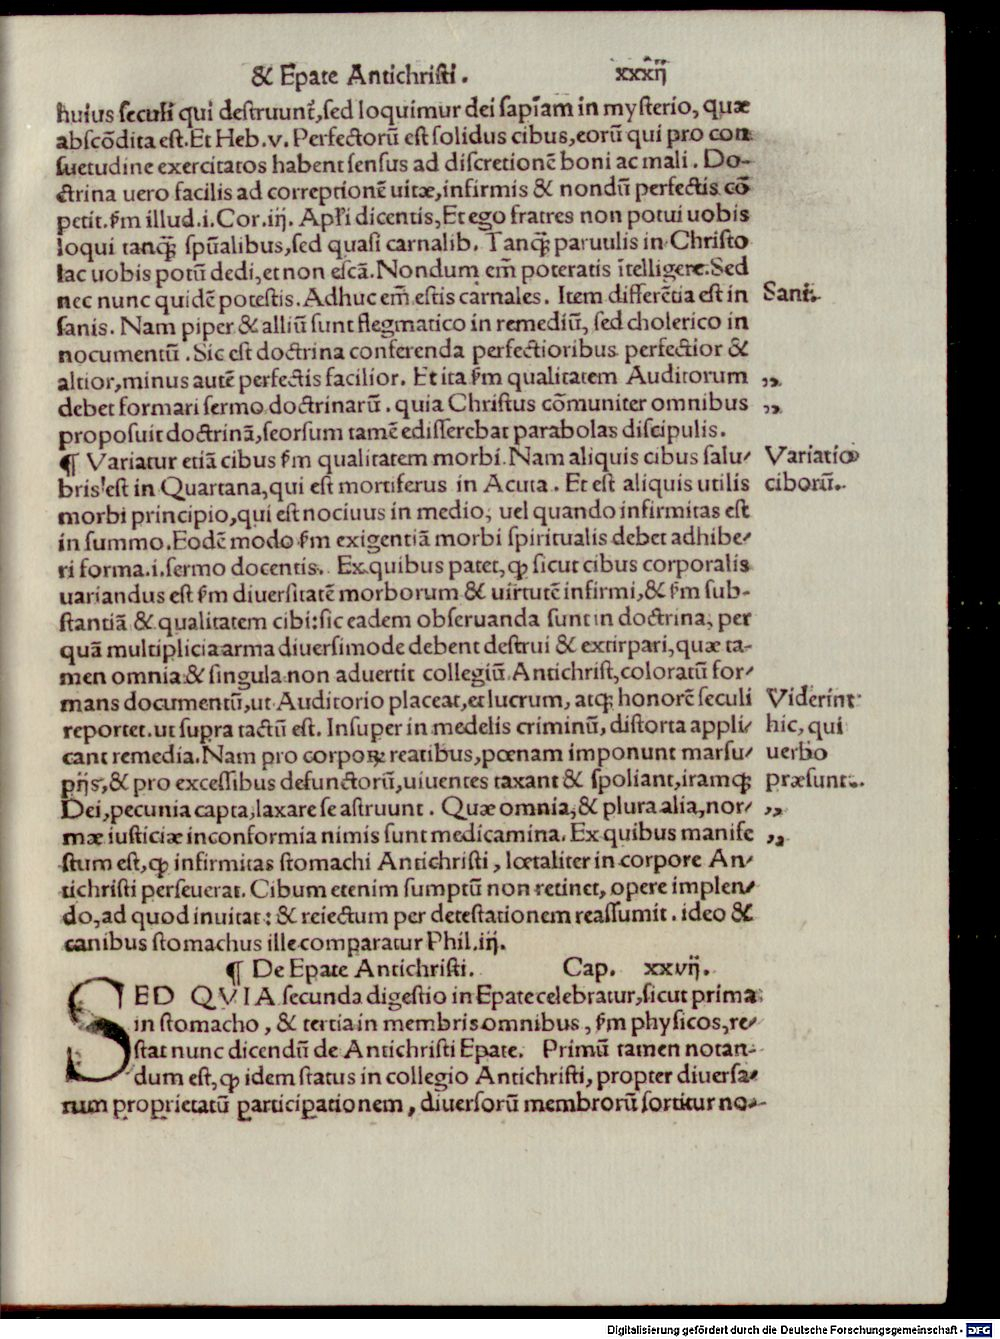 & Epate Antichriſti. xxxiĳ
huius ſeculi qui deſtruunt᷑, ſed loquimur dei ſapiam̄ in myſterio, quæ
abſcōdita eſt. Et Heb. v. Perfectorū eſt ſolidus cibus, eorū qui pro con
ſuetudine exercitatos habent ſenſus ad diſcretionē boni ac mali. Do-
ctrina uero facilis ad correptionē uitæ, infirmis & nondū perfectis cō
petit. ſm̄ illud. i. Cor. iĳ. Apľi dicentis, Et ego fratres non potui uobis
loqui tanꝙ̄ ſpūalibus, ſed quaſi carnalib. Tanꝙ̄ paruulis in Chriſto
lac uobis potū dedi, et non eſcā. Nondum em̄ poteratis ītelligere. Sed
nec nunc quidē poteſtis. Adhuc em̄ eſtis carnales. Item differētia eſt in
Sani.
ſanis. Nam piper & alliū ſunt flegmatico in remediū, ſed cholerico in
nocumentū. Sic eſt doctrina conferenda perfectioribus perfectior &
altior, minus autē perfectis facilior. Et ita ſm̄ qualitatem Auditorum
,,
debet formari ſermo doctrinarū. quia Chriſtus cōmuniter omnibus
,,
propoſuit doctrinā, ſeorſum tamē ediſſerebat parabolas diſcipulis.
¶ Variatur etiā cibus ſm̄ qualitatem morbi. Nam aliquis cibus ſalu-
Variatio
bris eſt in Quartana, qui eſt mortiferus in Acuta. Et eſt aliquis utilis
ciborū.
morbi principio, qui eſt nociuus in medio, uel quando infirmitas eſt
in ſummo. Eodē modo ſm̄ exigentiā morbi ſpiritualis debet adhibe-
ri forma. i. ſermo docentis. Ex quibus patet, ꝙ ſicut cibus corporalis
uariandus eſt ſm̄ diuerſitatē morborum & uirtutē infirmi, & ſm̄ ſub-
ſtantiā & qualitatem cibi: ſic eadem obſeruanda ſunt in doctrina, per
quā multiplicia arma diuerſimode debent deſtrui & extirpari, quæ ta-
men omnia & ſingula non aduertit collegiū Antichriſt, coloratū for-
mans documentū, ut Auditorio placeat, et lucrum, atq; honorē ſeculi
Viderint
reportet. ut ſupra tactū eſt. Inſuper in medelis criminū, diſtorta appli-
hic, qui
cant remedia. Nam pro corporꝝ reatibus, pœnam imponunt marſu-
uerbo
pĳs, & pro exceſſibus defunctorū, uiuentes taxant & ſpoliant, iramq;
præſunt.
Dei, pecunia capta, laxare ſe aſtruunt. Quæ omnia, & plura alia, nor-
,,
mæ iuſticiæ inconformia nimis ſunt medicamina. Ex quibus manife
,,
ſtum eſt, ꝙ infirmitas ſtomachi Antichriſti, lœtaliter in corpore An-
tichriſti perſeuerat. Cibum etenim ſumptū non retinet, opere implen-
do, ad quod inuitat: & reiectum per deteſtationem reaſſumit. ideo &
canibus ſtomachus ille comparatur Phil. iĳ.
¶ De Epate Antichriſti. Cap. xxvĳ.
SED QVIA ſecunda digeſtio in Epate celebratur, ſicut prima
in ſtomacho, & tertia in membris omnibus, ſm̄ phyſicos, re-
ſtat nunc dicendū de Antichriſti Epate. Primū tamen notan-
dum eſt, ꝙ idem ſtatus in collegio Antichriſti, propter diuerſa-
rum proprietatū participationem, diuerſorū membrorū ſortitur no-
Digitalisierung gefördert durch die Deutsche Forschungsgemeinschaft - DFG